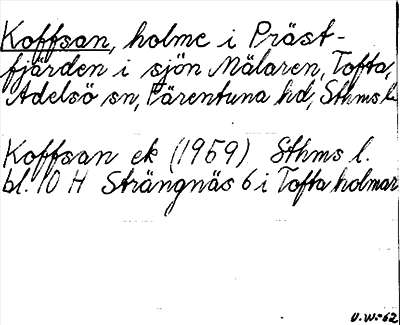 Koffsan, holme i Präst-
fjärden i sjön Mälaren, Tofta,
Adelsö sn, Färentuna hd, Sthms l.
Koffsan ek (1959) Sthms l.
bl. 10 H Strängnäs 6 i Tofta holmar
U.W-62